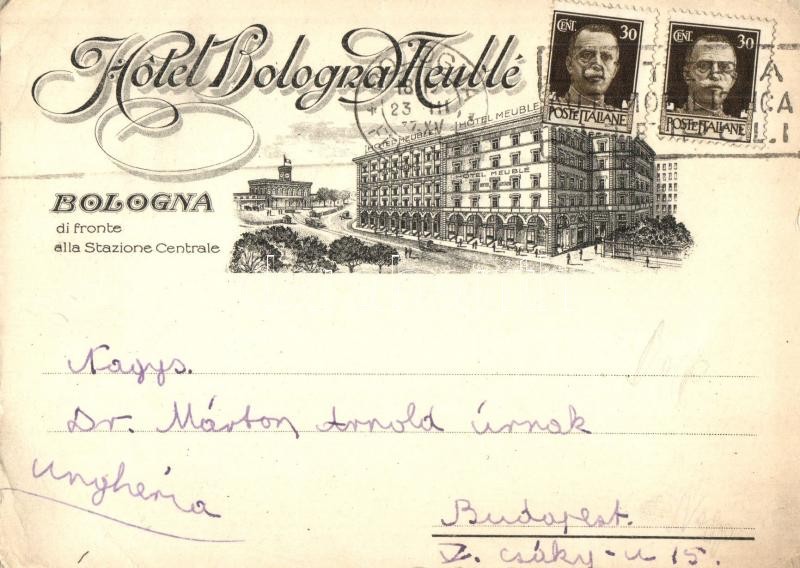 Hôtel Bologna Meublé
CENT. 30
POSTE ITALIANE
CENT. 30
POSTE ITALIANE
23 III
HOTEL MEUBLÉ
HOTEL MEUBLÉ
HOTEL MEUBLÉ
BOLOGNA
di fronte
alla Stazione Centrale
Nagys.
Dr. Márton Arnold úrnak
Ungheria
Budapest.
V. Csáky-u 15.